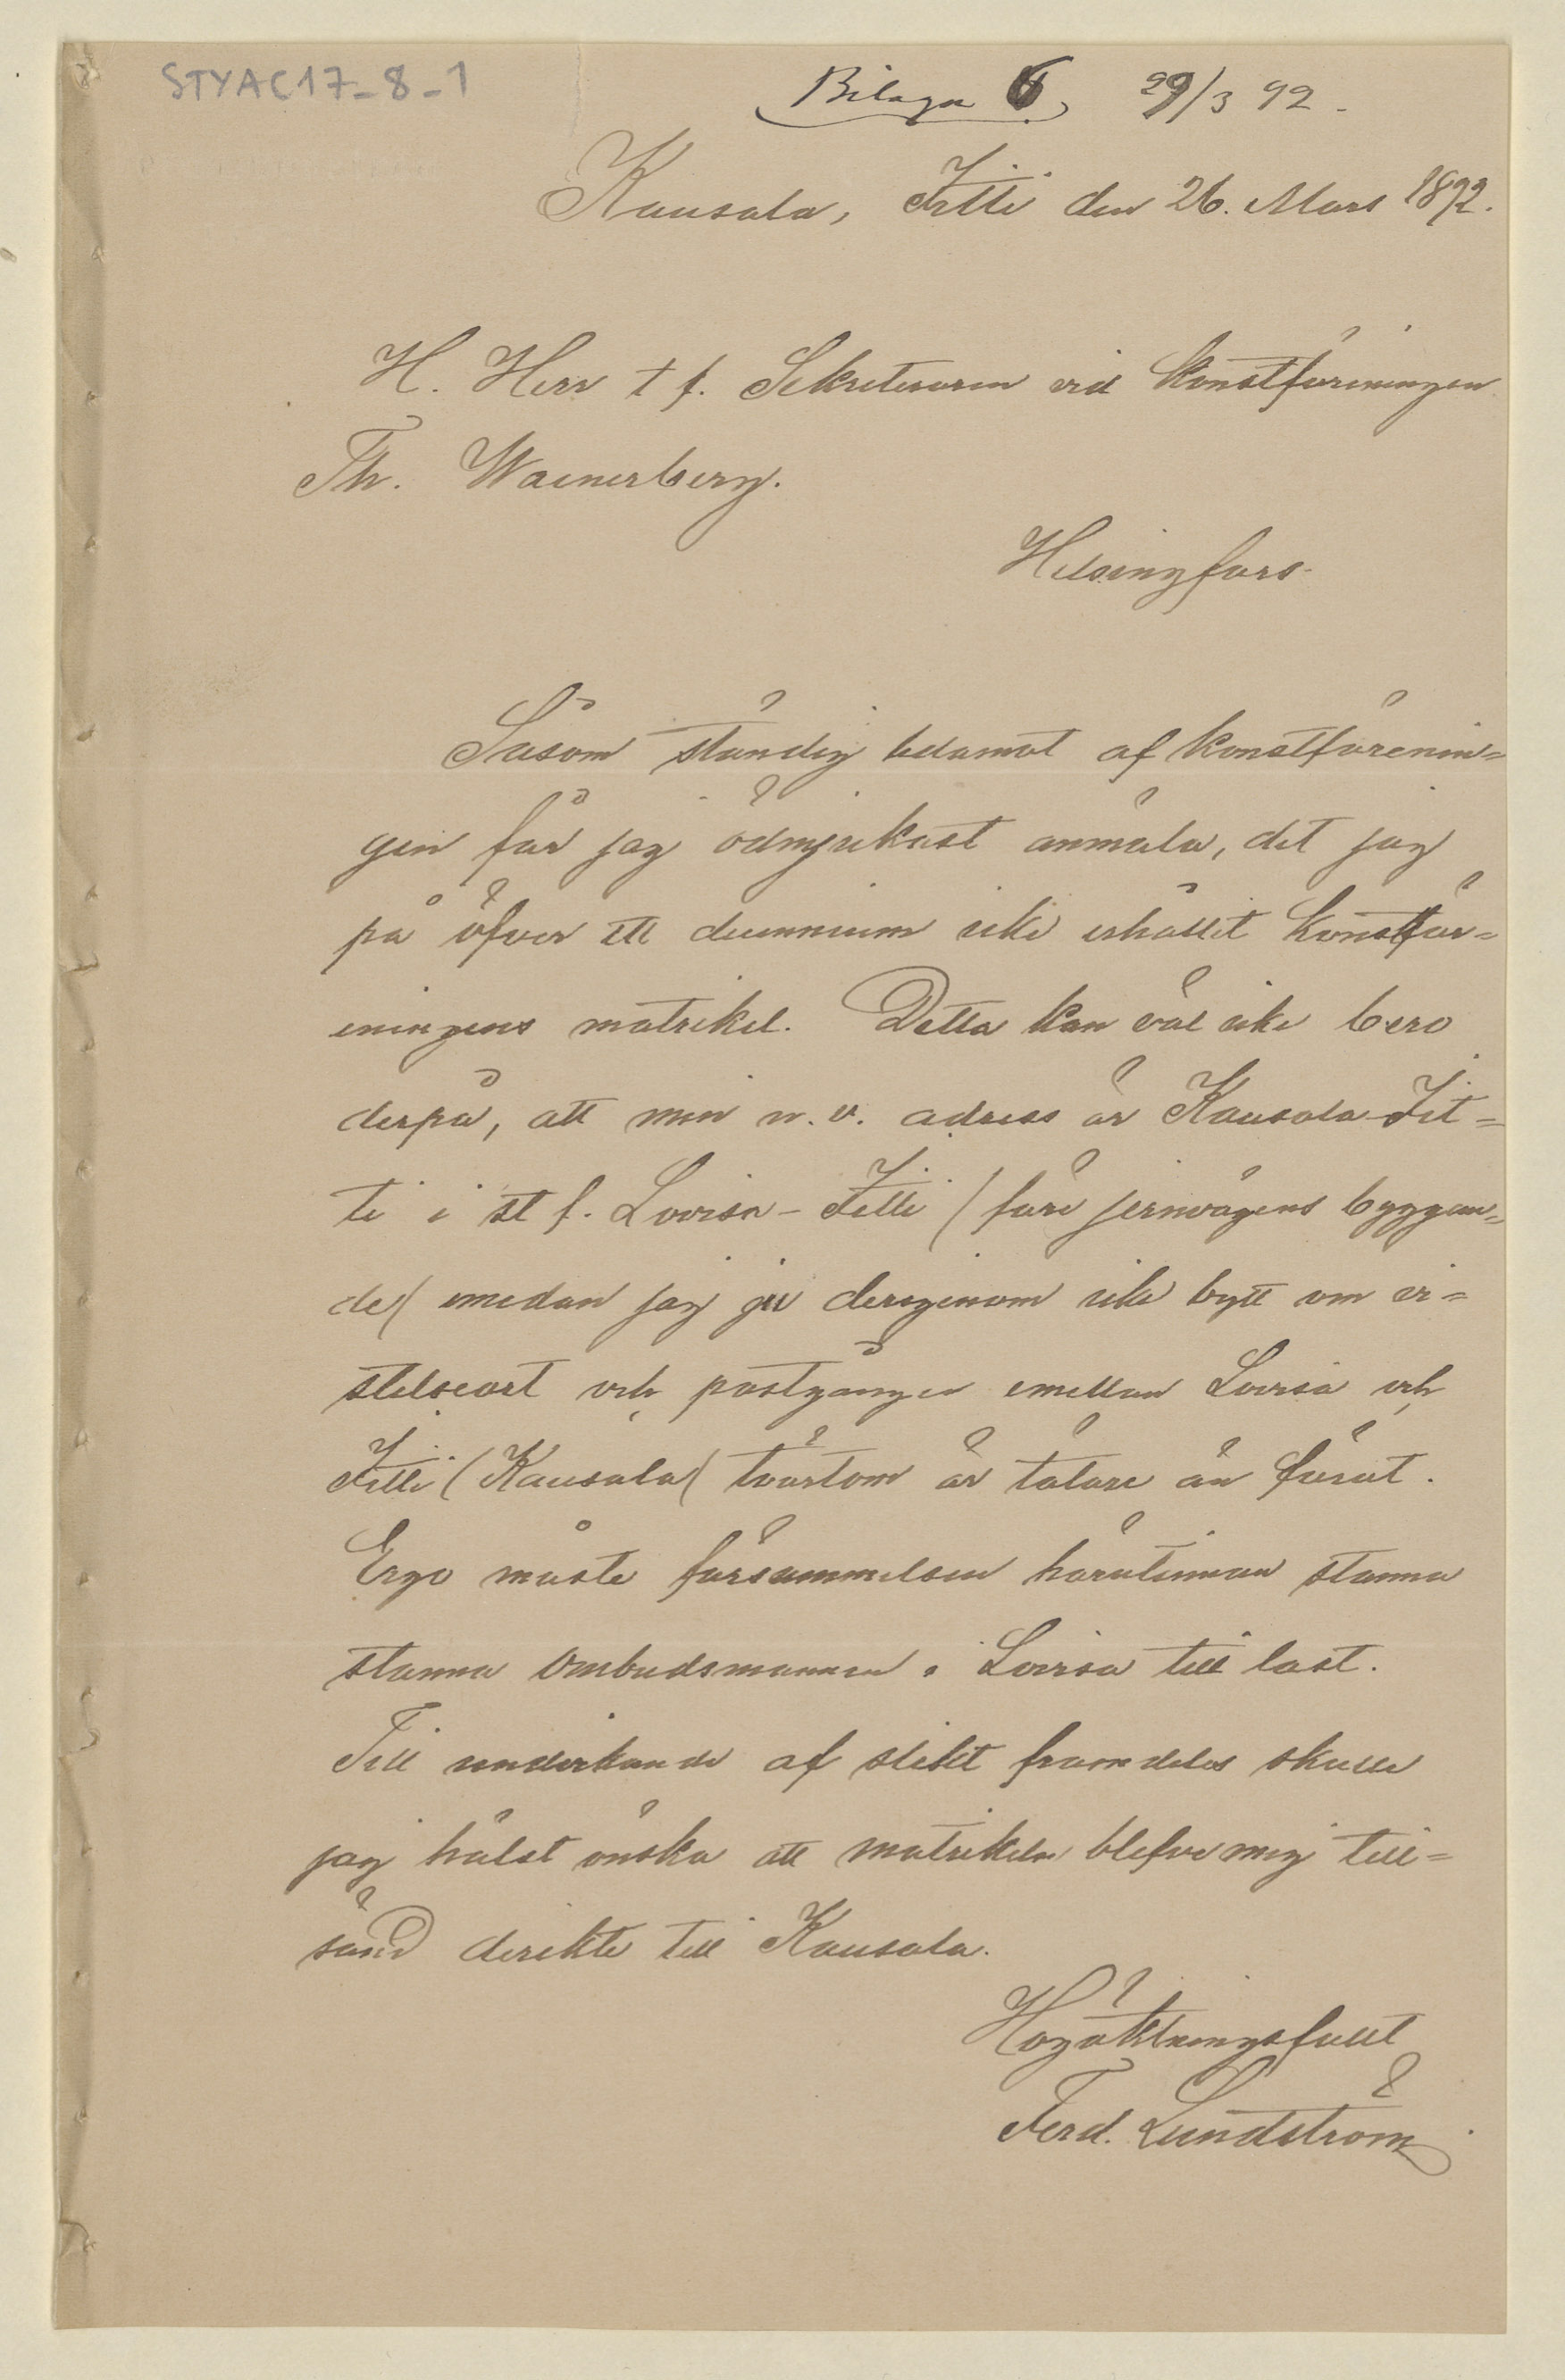 STYAC17-8-1
Bilaga 6, 29/3 92.
Kausala, Itti den 26. Mars 1892.
H. Herr t f. Sekreteraren vid Konstföreningen
Th. Waenerberg.
Helsingfors.
Såsom ständig ledamot af Konstförenin=
gen får jag ödmjukast anmäla, det jag
på öfver ett decennium icke erhållit Konstför=
eningens matrikel. Detta kan väl icke bero
derpå, att min n. v. adress är Kausala-It=
ti i st f. Lovisa-Itti (före jernvägens byggan=
de( emedan jag ju derigenom icke bytt om vi=
stelseort och postgången emellan Lovisa och
Itti (Kausala( tvärtom är tätare än förut.
Ergo måste försummelsen härutinnan stanna
stanna Ombudsmannen i Lovisa till last.
Till undvikande af slikt framdeles skulle
jag hälst önska att matrikeln blefve mig till=
sänd direkte till Kausala.
Högaktningsfullt
Ferd. Lundström